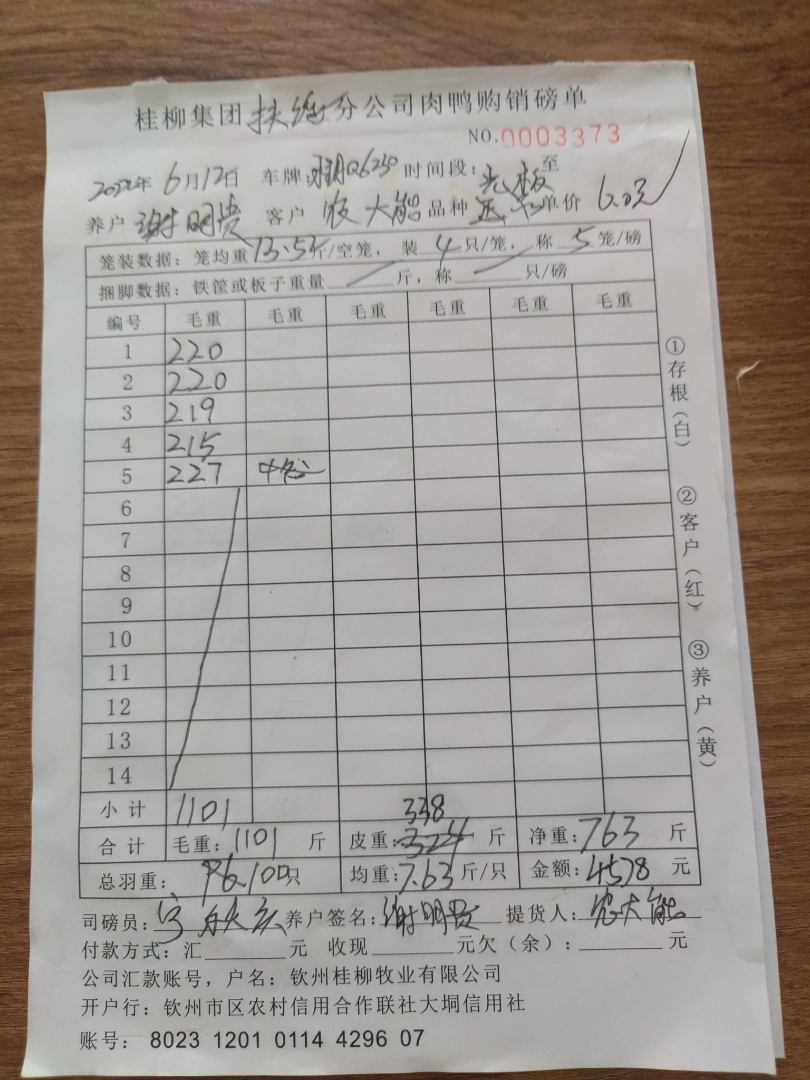 桂柳集团扶绥分公司肉鸭购销磅单
NO.0003373
2022年 6月12日 车牌: Q6250 时间段: 至
养户 谢明贵 客户 农大能 品种 光板 单价 6.0元
笼装数据: 笼均重13.53斤/空笼, 装 4 只/笼, 称 5 笼/磅
捆脚数据: 铁筐或板子重量 斤, 称 只/磅
编号 毛重 毛重 毛重 毛重 毛重 毛重
1 220
2 220
3 219
4 215
5 227
6
7
8
9
10
11
12
13
14
小计 1101 338
合计 毛重: 1101 斤 皮重: 324 斤 净重: 763 斤
总羽重: 100只 均重: 7.63斤/只 金额: 4578 元
司磅员: 养户签名: 谢明贵 提货人: 农大能
付款方式: 汇 元 收现 元欠(余): 元
公司汇款账号, 户名: 钦州桂柳牧业有限公司
开户行: 钦州市区农村信用合作联社大垌信用社
账号: 8023 1201 0114 4296 07
①存根(白) ②客户(红) ③养户(黄)